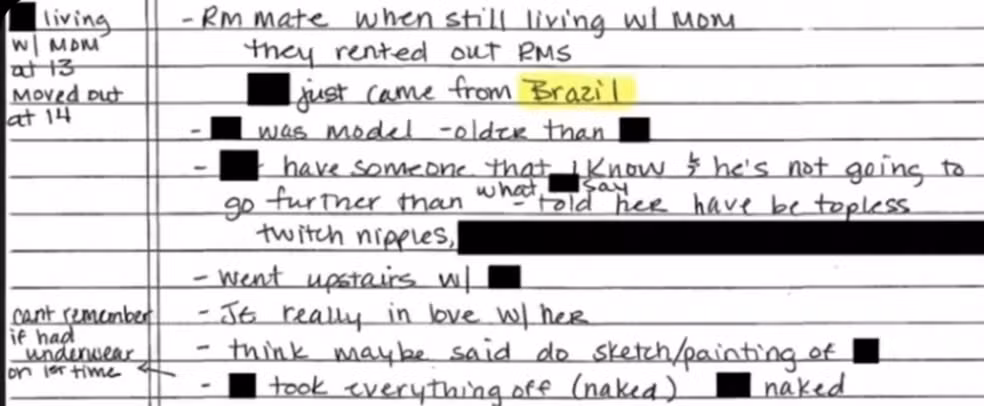 living
w/ MOM
at 13
moved out
at 14
- Rm mate when still living w/ mom
they rented out RMS
just came from Brazil
- was model - older than
- have someone that I know & he's not going to
what say
go further than - told her have be topless
twitch nipples,
- went upstairs w/
- JE really in love w/ her
cant remember
if had
underwear
on 1st time
- think maybe said do sketch/painting of
- took everything off (naked) naked